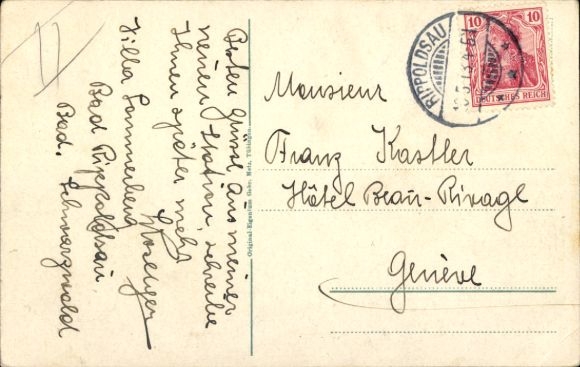 Besten Gruss aus meiner
neuen Station, schreibe
Ihnen später mehr
Villa Sommerberg
Bad Rippoldsau
Bad. Schwarzwald
Original-Eigentum Gebr. Metz, Tübingen.
RIPPOLDSAU
10 10
DEUTSCHES REICH
Monsieur
Franz Kastler
Hôtel Beau-Rivage
Genève